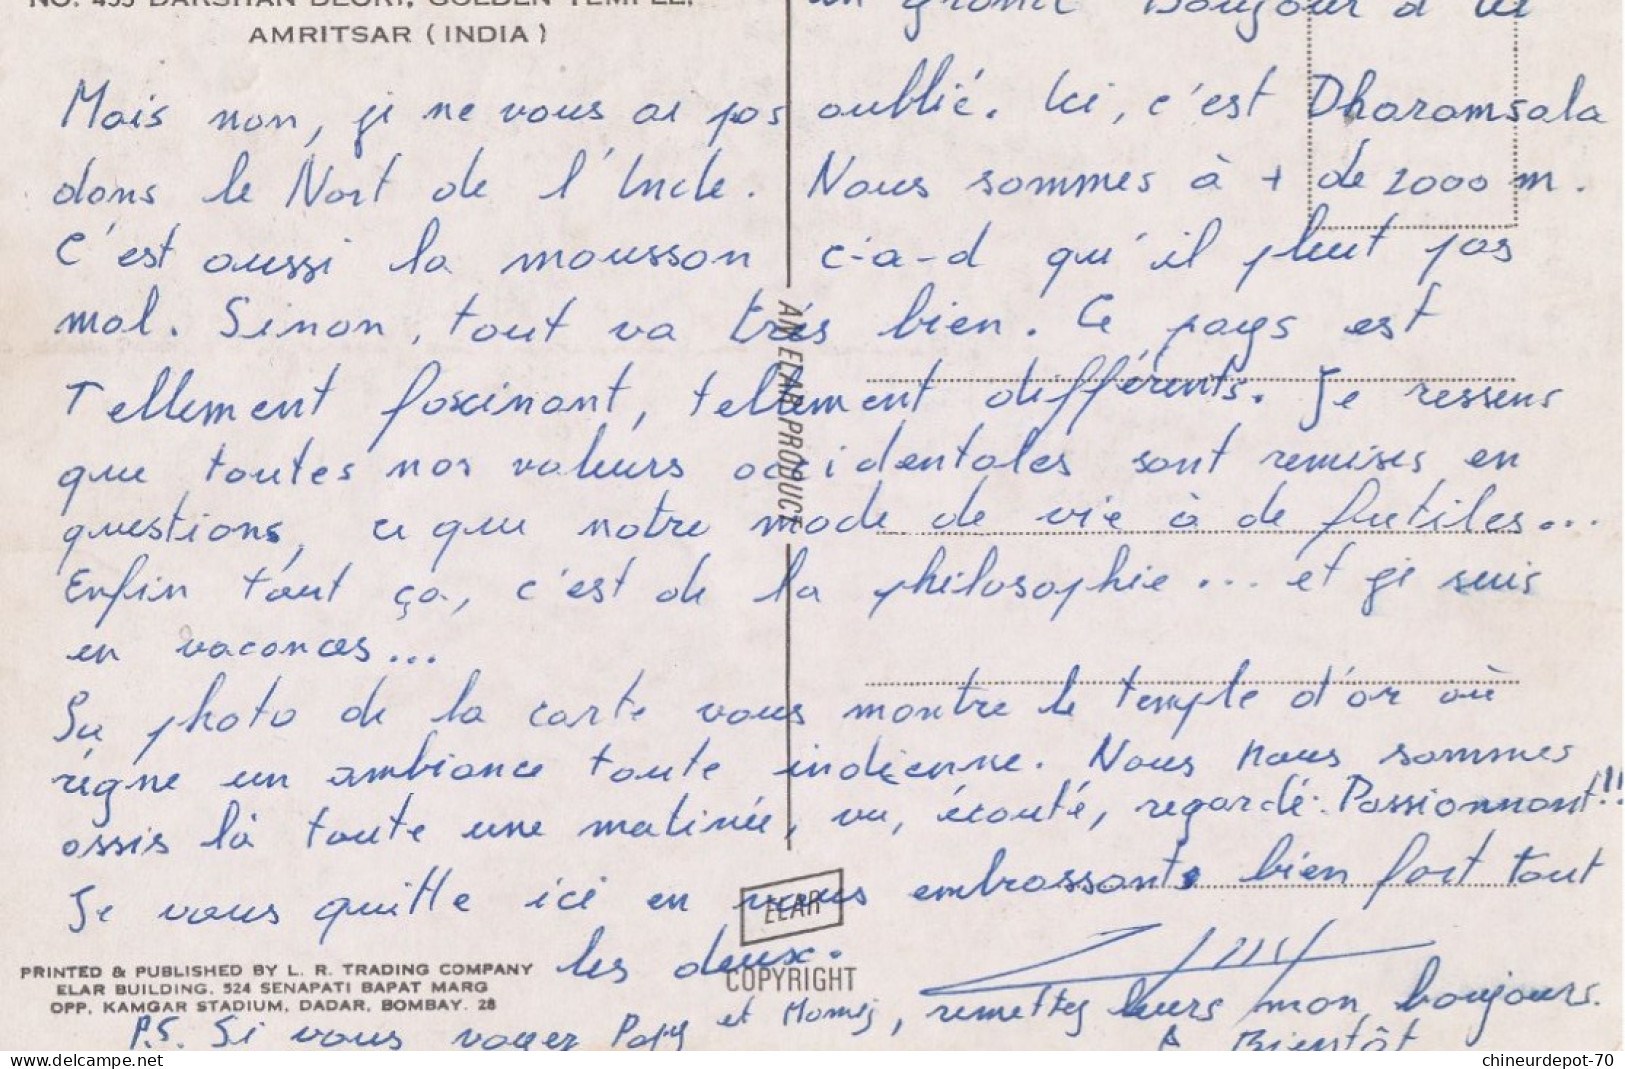 NO. 455 DARSHAN DEORI, GOLDEN TEMPLE,
AMRITSAR ( INDIA )
un grand Bonjour d'ici
Mais non, je ne vous ai pas oublié. Ici, c'est Dharamsala
dans le Nort de l'Inde. Nous sommes à + de 2000 m.
C'est aussi la mousson c-à-d qu'il pleut pas
mal. Sinon, tout va très bien. Ce pays est
Tellement fascinant, tellement différents. Je ressens
que toutes nos valeurs occidentales sont remises en
questions, ce que notre mode de vie à de futiles...
Enfin tout ça, c'est de la philosophie... et je suis
en vacances...
La photo de la carte vous montre le temple d'or où
règne un ambiance toute indienne. Nous nous sommes
assis là toute une matinée, vu, écouté, regardé. Passionnant!!
Je vous quitte ici en vous embrassants bien fort tout
les deux.
P.S. Si vous voyez Papy et Mamy, remettez leurs mon bonjours.
A Bientôt
AN ELAR PRODUCT
ELAR
COPYRIGHT
PRINTED & PUBLISHED BY L. R. TRADING COMPANY
ELAR BUILDING, 524 SENAPATI BAPAT MARG
OPP. KAMGAR STADIUM, DADAR, BOMBAY. 28
delcampe.net
chineurdepot-70